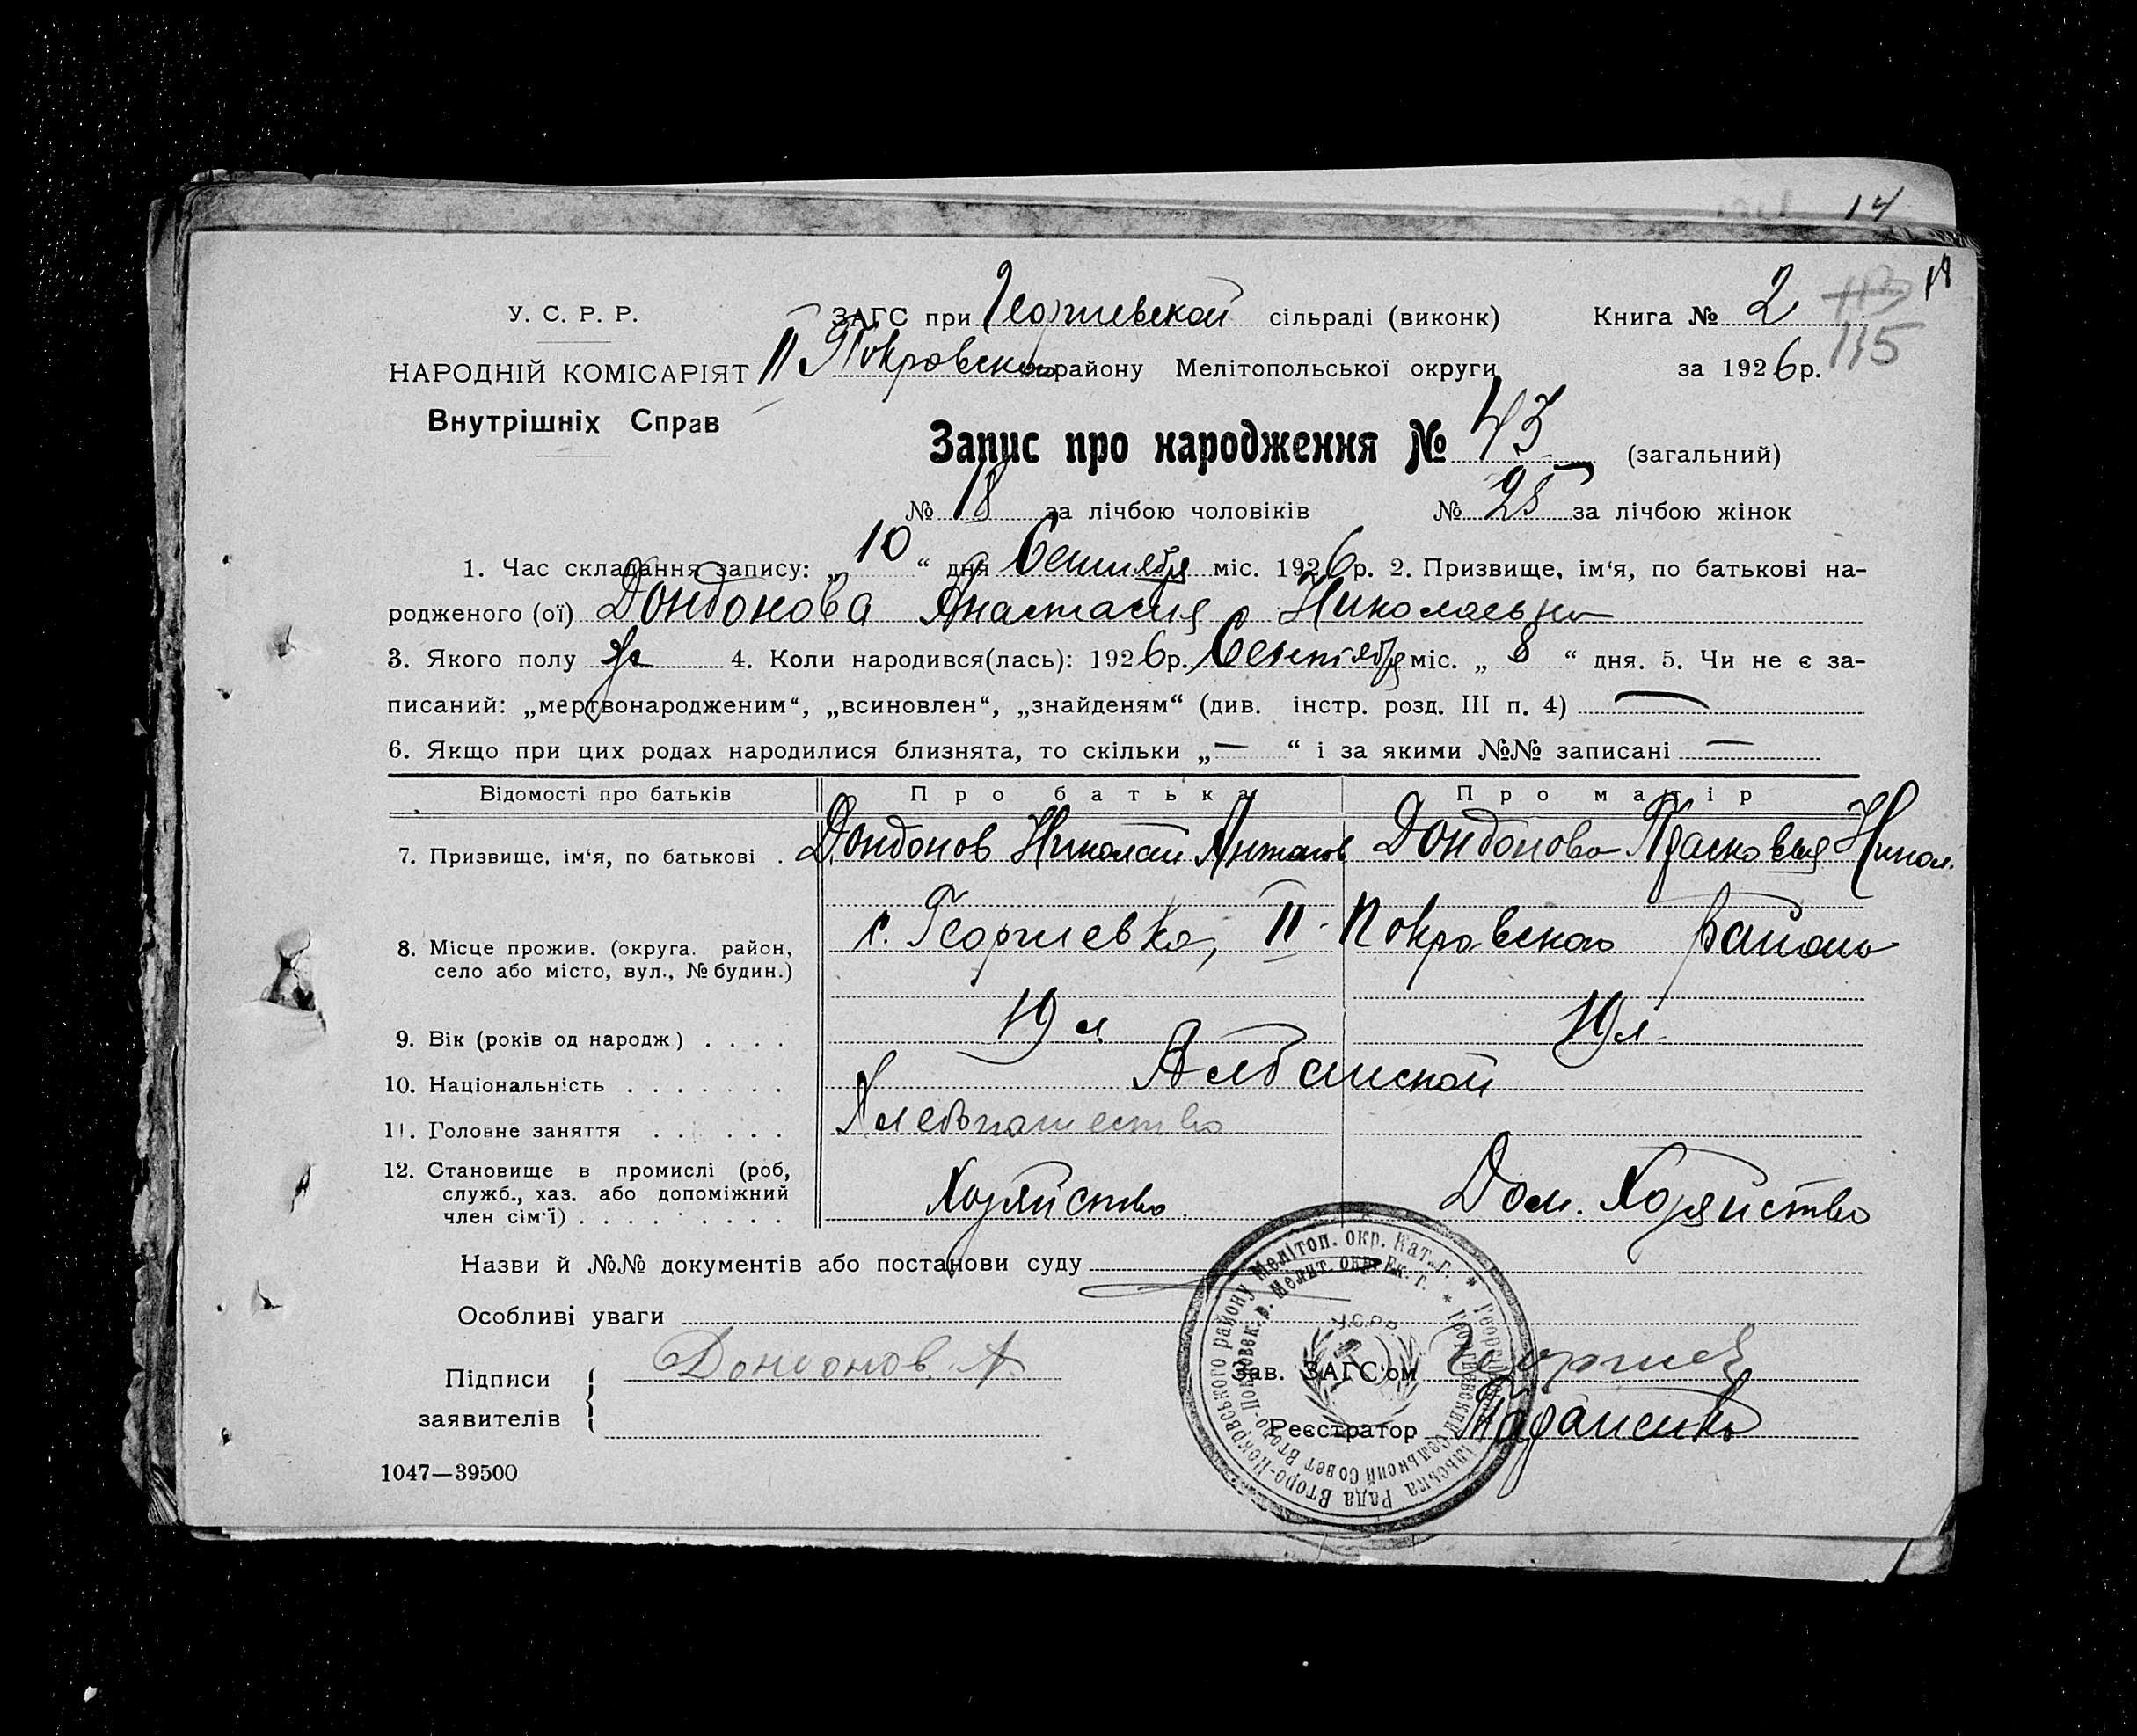 14
У. С. Р. Р.
ЗАГС при Георгиевской сільраді (виконк) Книга № 2
115
НАРОДНІЙ КОМІСАРІЯТ II Покровского району Мелітопольської округи за 1926р.
Внутрішніх Справ
Запис про народження № 43 (загальний)
№ 18 за лічбою чоловіків № 25 за лічбою жінок
1. Час складання запису: „ 10 “ дня Сентября міс. 1926р. 2. Призвище, ім‘я, по батькові на-
родженого (ої) Дондонова Анастасия Николаевна
3. Якого полу ж 4. Коли народився(лась): 1926р. Сентября міс. „ 8 “ дня. 5. Чи не є за-
писаний: „мертвонародженим“, „всиновлен“, „знайденям“ (див. інстр. розд. III п. 4) —
6. Якщо при цих родах народилися близнята, то скільки „—“ і за якими №№ записані —
Відомості про батьків Про батька Про матір
7. Призвище, ім‘я, по батькові . Дондонов Николай Антонов Дондонова Прасковья Никол.
8. Місце прожив. (округа. район, с. Георгиевка, II - Покровского района
село або місто, вул., № будин.)
9. Вік (років од народж) . . . . 19 л 19 л.
10. Національність . . . . . . . Албанской
11. Головне заняття . . . . . . Хлебопашество
12. Становище в промислі (роб,
служб., хаз. або допоміжний
член сім‘ї) . . . . . . . . . Хозяйство Дом. Хозяйство
Назви й №№ документів або постанови суду
Особливі уваги
Підписи
заявителів
Дондонов. А
Зав. ЗАГС‘ом Георгиев
Реєстратор
1047—39500
У.С.Р.Р.